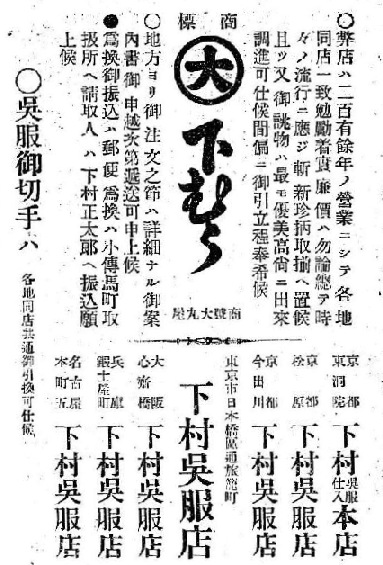 〇弊店ハ二百有餘年ノ營業ニシテ各地
同店一致勉勵着實廉價ハ勿論總テ時
々ノ流行ニ應ジ斬新珍柄取揃ヘ置候
且ツ又御誂物ハ最モ優美高尚ニ出來
調進可仕候間偏ニ御引立程奉希候
商標
大
下むら
商號大丸屋
〇地方ヨリ御注文之節ハ詳細ナル御案
內書御申越次第遞送可申上候
●爲換御振込ハ郵便爲換ハ小傳馬町取
扱所ヘ請取人ハ下村正太郎ヘ振込願
上候
〇吳服御切手ハ
各地同店共通御引換可仕候
京都東洞院
下村吳服仕入本店
京都松原
下村吳服店
京都今出川
下村吳服店
東京市日本橋區通旅籠町
下村吳服店
大阪心齋橋
下村吳服店
兵庫鍛土屋町
下村吳服店
名古屋本町五
下村吳服店